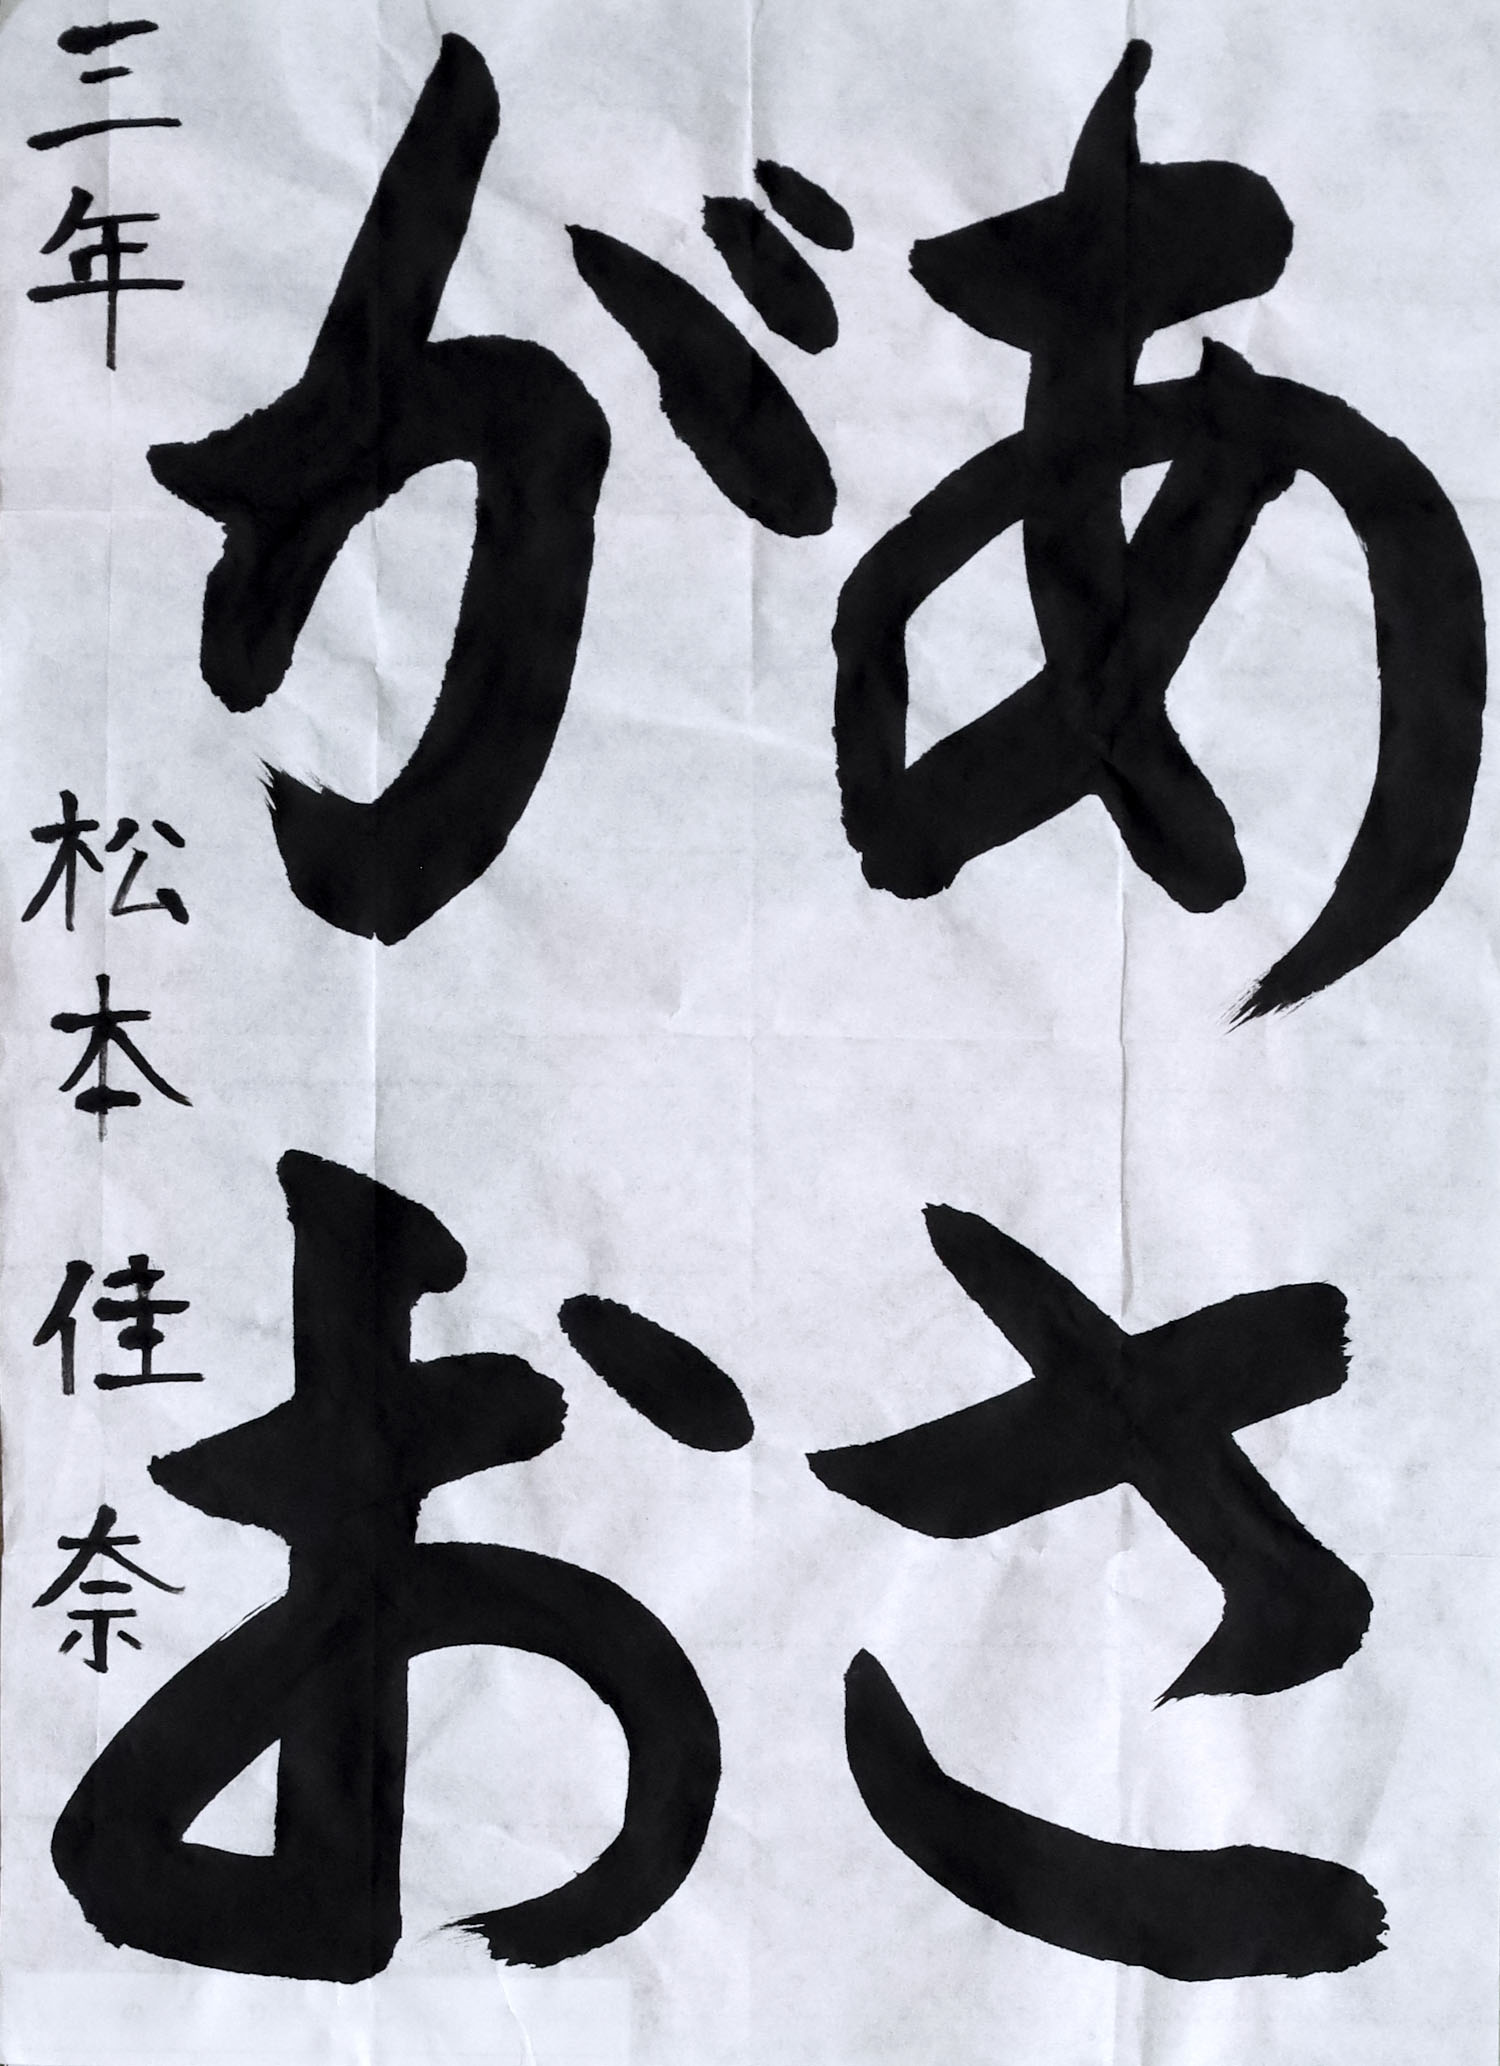 あさ
がお
三年 松本佳奈